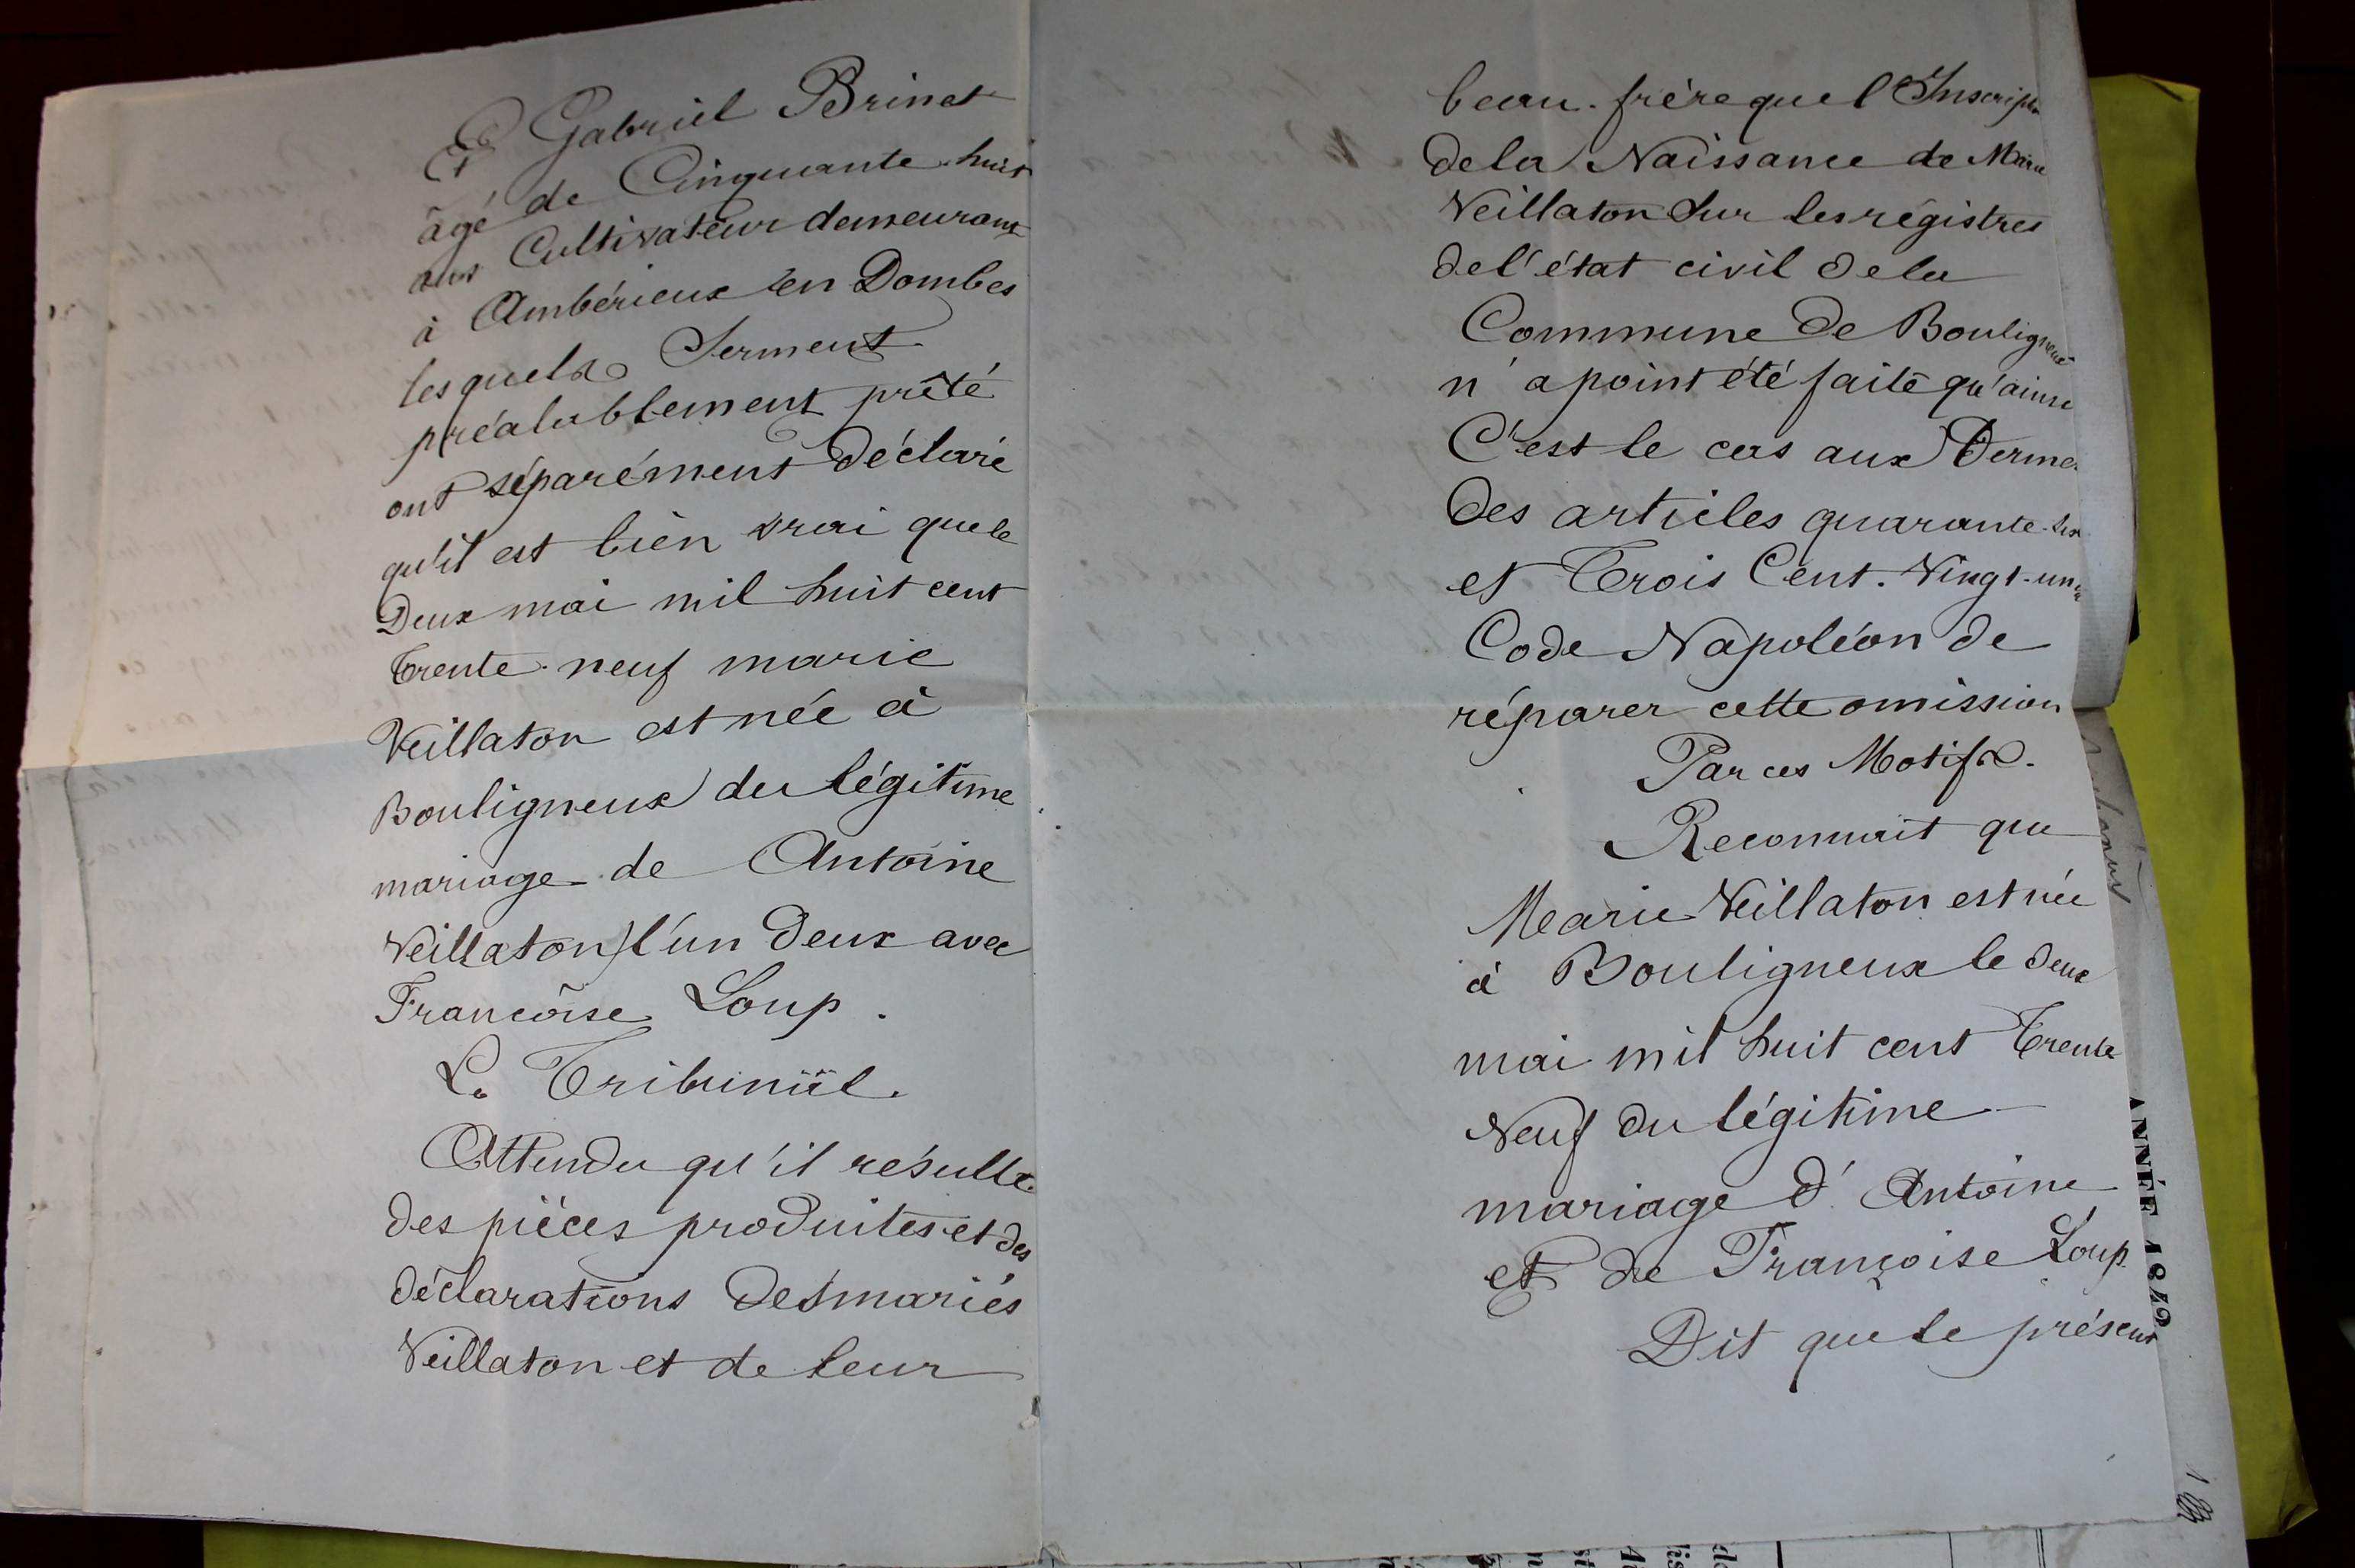 Et Gabriel Brinet
âgé de Cinquante-huit
ans Cultivateur demeurant
à Ambérieux en Dombes
lesquels Serment
préalablement prêté
ont séparément déclaré
qu'il est bien vrai que le
Deux mai mil huit cent
trente-neuf marie
Veillaton est née à
Bouligneux du légitime
mariage de Antoine
Veillaton l'un deux avec
Françoise Loup.
Le Tribunal.
Attendu qu'il résulte
des pièces produites et des
déclarations des mariés
Veillaton et de leur
beau-frère que l'Inscription
de la Naissance de Marie
Veillaton sur les régistres
de l'état civil de la
Commune de Bouligneux
n'a point été faite qu'ainsi
C'est le cas aux Termes
des articles quarante-six
et Trois Cent. Vingt-un
Code Napoléon de
réparer cette omission
Par ces Motifs.
Reconnait que
Marie Veillaton est née
à Bouligneux le deux
mai mil huit cent Trente
Neuf du légitime
mariage d'Antoine
et de Françoise Loup.
Dit que le présent
ANNÉE 1842